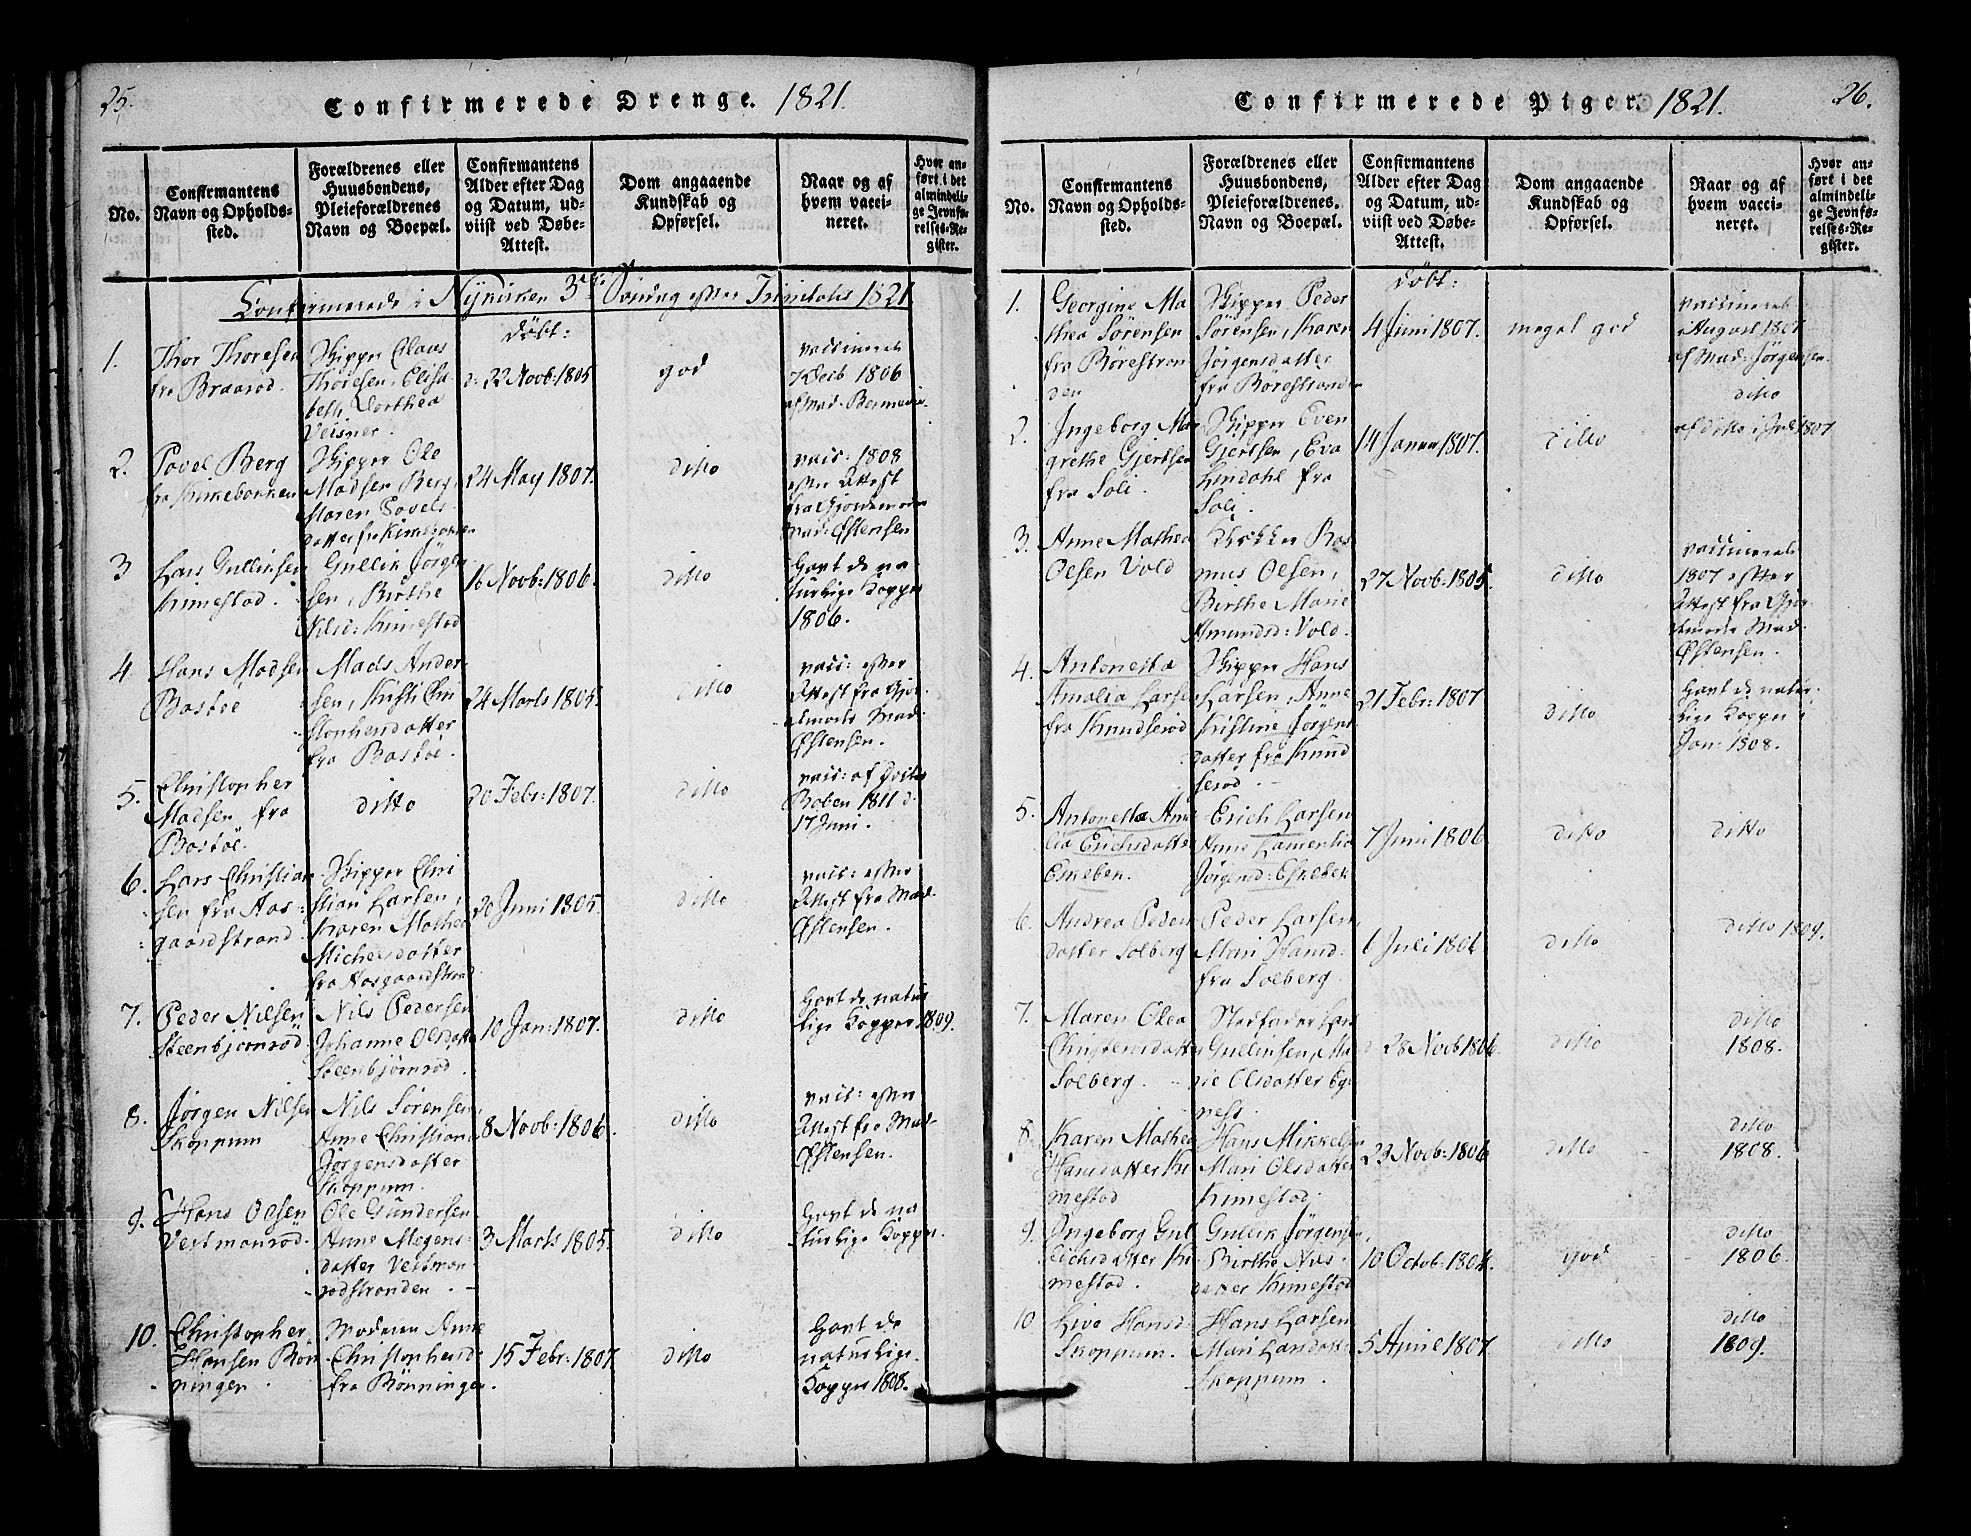 25.
Confirmerede Drenge. 1821.
No.
Confirmantens
Navn og Opholds-
sted.
Forældrenes eller
Huusbondens,
Pleieforældrenes
Navn og Boepæl.
Confirmantens
Alder efter Dag
og Datum, ud-
viist ved Døbe-
Attest.
Dom angaaende
Kundskab og
Opførsel.
Naar og af
hvem vacci-
neret.
Hvor an-
ført i det
almindeli-
ge Jevnfø-
relses-Re-
gister.
Confirmerede i Nykirken 3die Søndag efter Trinitatis 1821
døbt:
1.
Thor Thoresen
fra Braarød.
Skipper Claus
Thoresen, Elisa-
beth Dorthea
Veisner.
d. 22 Novb: 1805
god
vaccineret
7 Decb 1806
af Mad.
2.
Povel Berg
fra Kirkebakken
Skipper Ole
Madsen Berg,
Maren Povels
datter fra Kirkebakken
24 May 1807.
ditto
vacc: 1808
efter Attest
fra Gjordemoder
Mad: Østensen
3
Lars Gulliksen
Kimestad.
Gullik Jørgen-
sen, Birthe
Nilsd: Kimestad
16 Novb: 1806.
ditto
havt de na
turlige Kopper
1806.
4
Hans Madsen
Bastøe
Mads Ander-
sen, Kisti Chri
stophersdatter
fra Bastøe.
24 Marts 1805.
ditto
vacc: efter
Attest fra Gjor-
demoder Mad.
Østensen.
5.
Christopher
Madsen fra
Bastøe.
ditto
20 Febr: 1807.
ditto
vacc: af Doctor
Boben 1811 d.
17 Juni.
6.
Lars Christian
sen fra Aas-
gaardstrand
Skipper Chri
stian Larsen,
Karen Mathea
Michelsdatter
fra Aasgaardstrand
20 Juni 1805.
ditto
vacc: efter
Attest fra Mad.
Østensen.
7.
Peder Nilsen
Steenbjørnrød
Nils Pedersen
Johanne Olsdatter
Steenbjørnrød.
10 Jan: 1807.
ditto
havt de natur
lige Kopper 1809.
8.
Jørgen Nilsen
Skoppum
Nils Sørensen,
Anne Christiana
Jørgensdatter
Skoppum.
8 Novb: 1806.
ditto
vacc: efter
Attest fra Mad-
Østensen.
9.
Hans Olsen
Vestmanrød.
Ole Gundersen
Anne Mogens-
datter Vestman
rødstranden.
3 Marts 1805.
ditto
havt de na
turlige Kopper.
10.
Christopher
Hansen Røn-
ningen.
Moderen Anne
Christophersd
fra Rønningen.
15 Febr: 1807.
ditto
havt de
naturlige
Kopper 1808.
26.
Confirmerede Piger. 1821.
No.
Confirmantens
Navn og Opholds-
sted.
Forældrenes eller
Huusbondens,
Pleieforældrenes.
Navn og Boepæl.
Confirmantens
Alder efter Dag
og Datum, ud-
viist ved Døbe-
Attest.
Dom angaaende
Kundskab og
Opførsel.
Naar og af
hvem vacci-
neret.
Hvor an-
ført i det
almindeli-
ge Jevnfø-
relses-Re-
gister.
døbt:
1.
Georgine Ma
thea Sørensen
fra Borrestran
den
Skipper Peder
Sørensen, Karen
Jørgensdatter
fra Borrestranden
4 Juni 1807.
meget god
vaccineret
August 1807
af Mad: Jørgensen.
2.
Ingeborg Mar
grethe Gjertsen
fra Soli.
Skipper Even
Gjertsen, Eva
Lindahl fra
Soli.
14 Januar 1807.
ditto
ditto
af ditto i Juli 1807
3.
Anne Mathea
Olsen Vold
Klokker Ras
mus Olsen,
Birthe Marie
Amundsd: Vold.
27 Novb: 1805.
ditto
vaccineret
1807 efter
Attest fra Gjor
demoder Mad.
Østensen.
4.
Antonetta
Amalia Larsen
fra Knudserød
Skipper Hans
Larsen, Anne
Kistine Jørgens
datter fra Knud
serød.
21 Febr: 1807
ditto
havt de natur-
lige Kopper i
Jan: 1808.
5.
Antonetta Ame
lia Erichsdatter
Eskeben.
Erich Larsen
Anne Lamentia
Jørgensd: Eskebek
7 Juni 1806
ditto
ditto
6.
Andrea Peders
datter Solberg
Peder Larsen,
Mari Hansd.
fra Solberg.
6 Juli 1806
ditto
ditto 1809.
7.
Maren Olea
Christensdatter
Solberg.
Stedfader Lars
Gulliksen, Ma
rie Olsdatter Eg
ness.
d. 28 Novb 1806.
ditto
ditto
1808.
8
Karen Mathea
Hansdatter Ki
mestad
Hans Mikkelsen
Mari Olsdatter
Kimestad.
23 Novb: 1806
ditto
ditto
1808.
9.
Ingeborg Gul
lichsdatter Ki
mestad.
Gullik Jørgensen,
Birthe Nils-
datter Kimestad
10 Octob: 1804.
god
ditto
1806.
10
Live Hansd:
Skoppum.
Hans Larsen
Mari Larsdatter
Skoppum.
5 April 1807
ditto
ditto
1809.